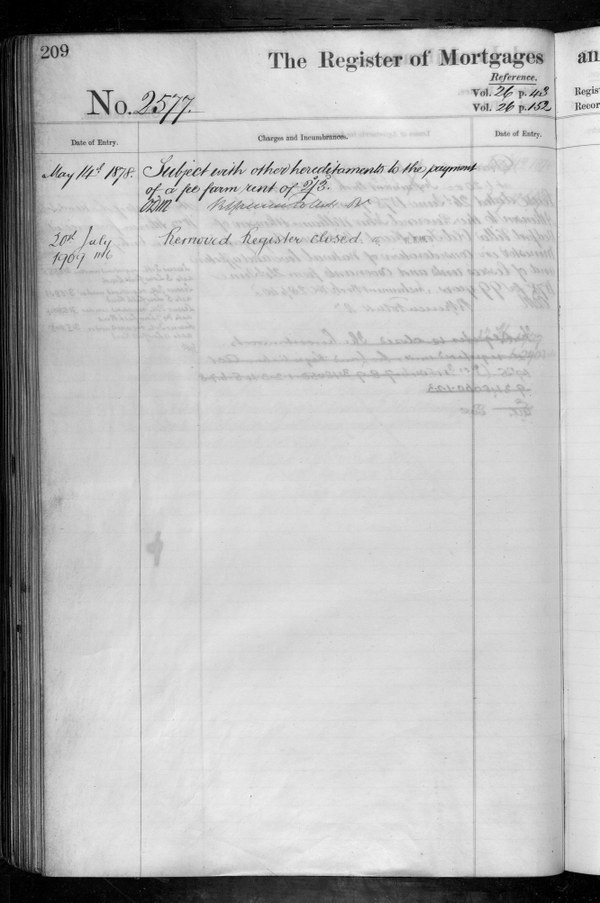 209
The Register of Mortgages
an
Reference.
Vol. 26 p. 43
Regist
No. 2577.
Vol. 26 p. 152
Recor
Date of Entry.
Charges and Incumbrances.
Date of Entry.
May 14th 1878.
Subject with other hereditaments to the payment
of a fee farm rent of 2/3.
20th July
1909
Removed Register closed